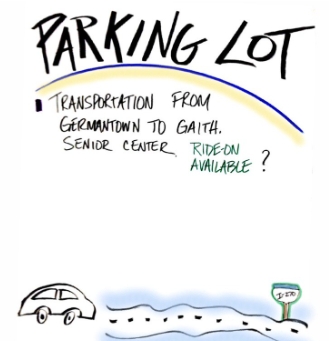 PARKING LOT
TRANSPORTATION FROM
GERMANTOWN TO GAITH.
SENIOR CENTER RIDE-ON
AVAILABLE ?
I-270